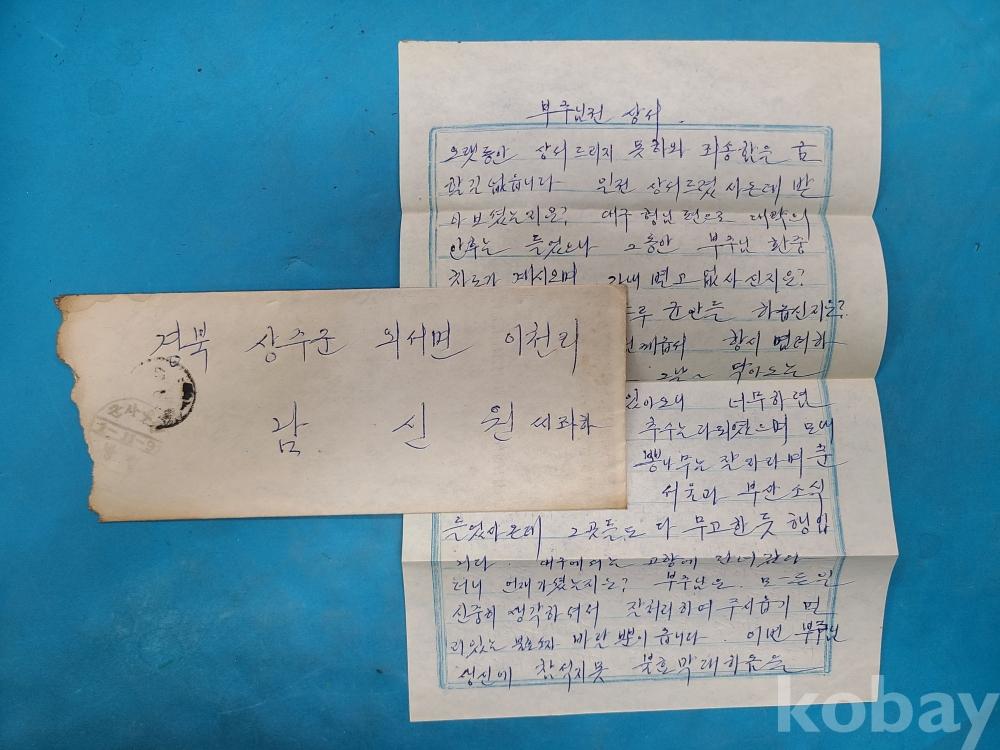 부주님전 상서
오랫동안 상서드리지 못하와 죄송함은 금
할 길 없읍니다 일전 상서드렸사온데 받
아보셨는지온? 대구 형님편으로 대략의
안후는 들었으나 그동안 부주님 환중
차도가 계시오며 가내 별고 없사신지온?
균안들 하옵신지온?
께옵서 항시 염려하
덕아도는
있아오니 너무하렴
추수는 다되였으며
뽕나무는 잘 자라며
서울과 부산 소식
들었사온데 그곳들도 다 무고한 듯 행입
니다. 대구에서는 고향에
더니 언제 가셨는지온? 부주님은 모든 일
신중히 생각하셔서 잘 처리하여 주시옵기 먼
리있는 불효자 바랄 뿐이옵니다. 이번 부주님
생신에 참석지못 불효막대하음을
경북 상주군 외서면 이천리
남 신 원 씨 좌하
kobay